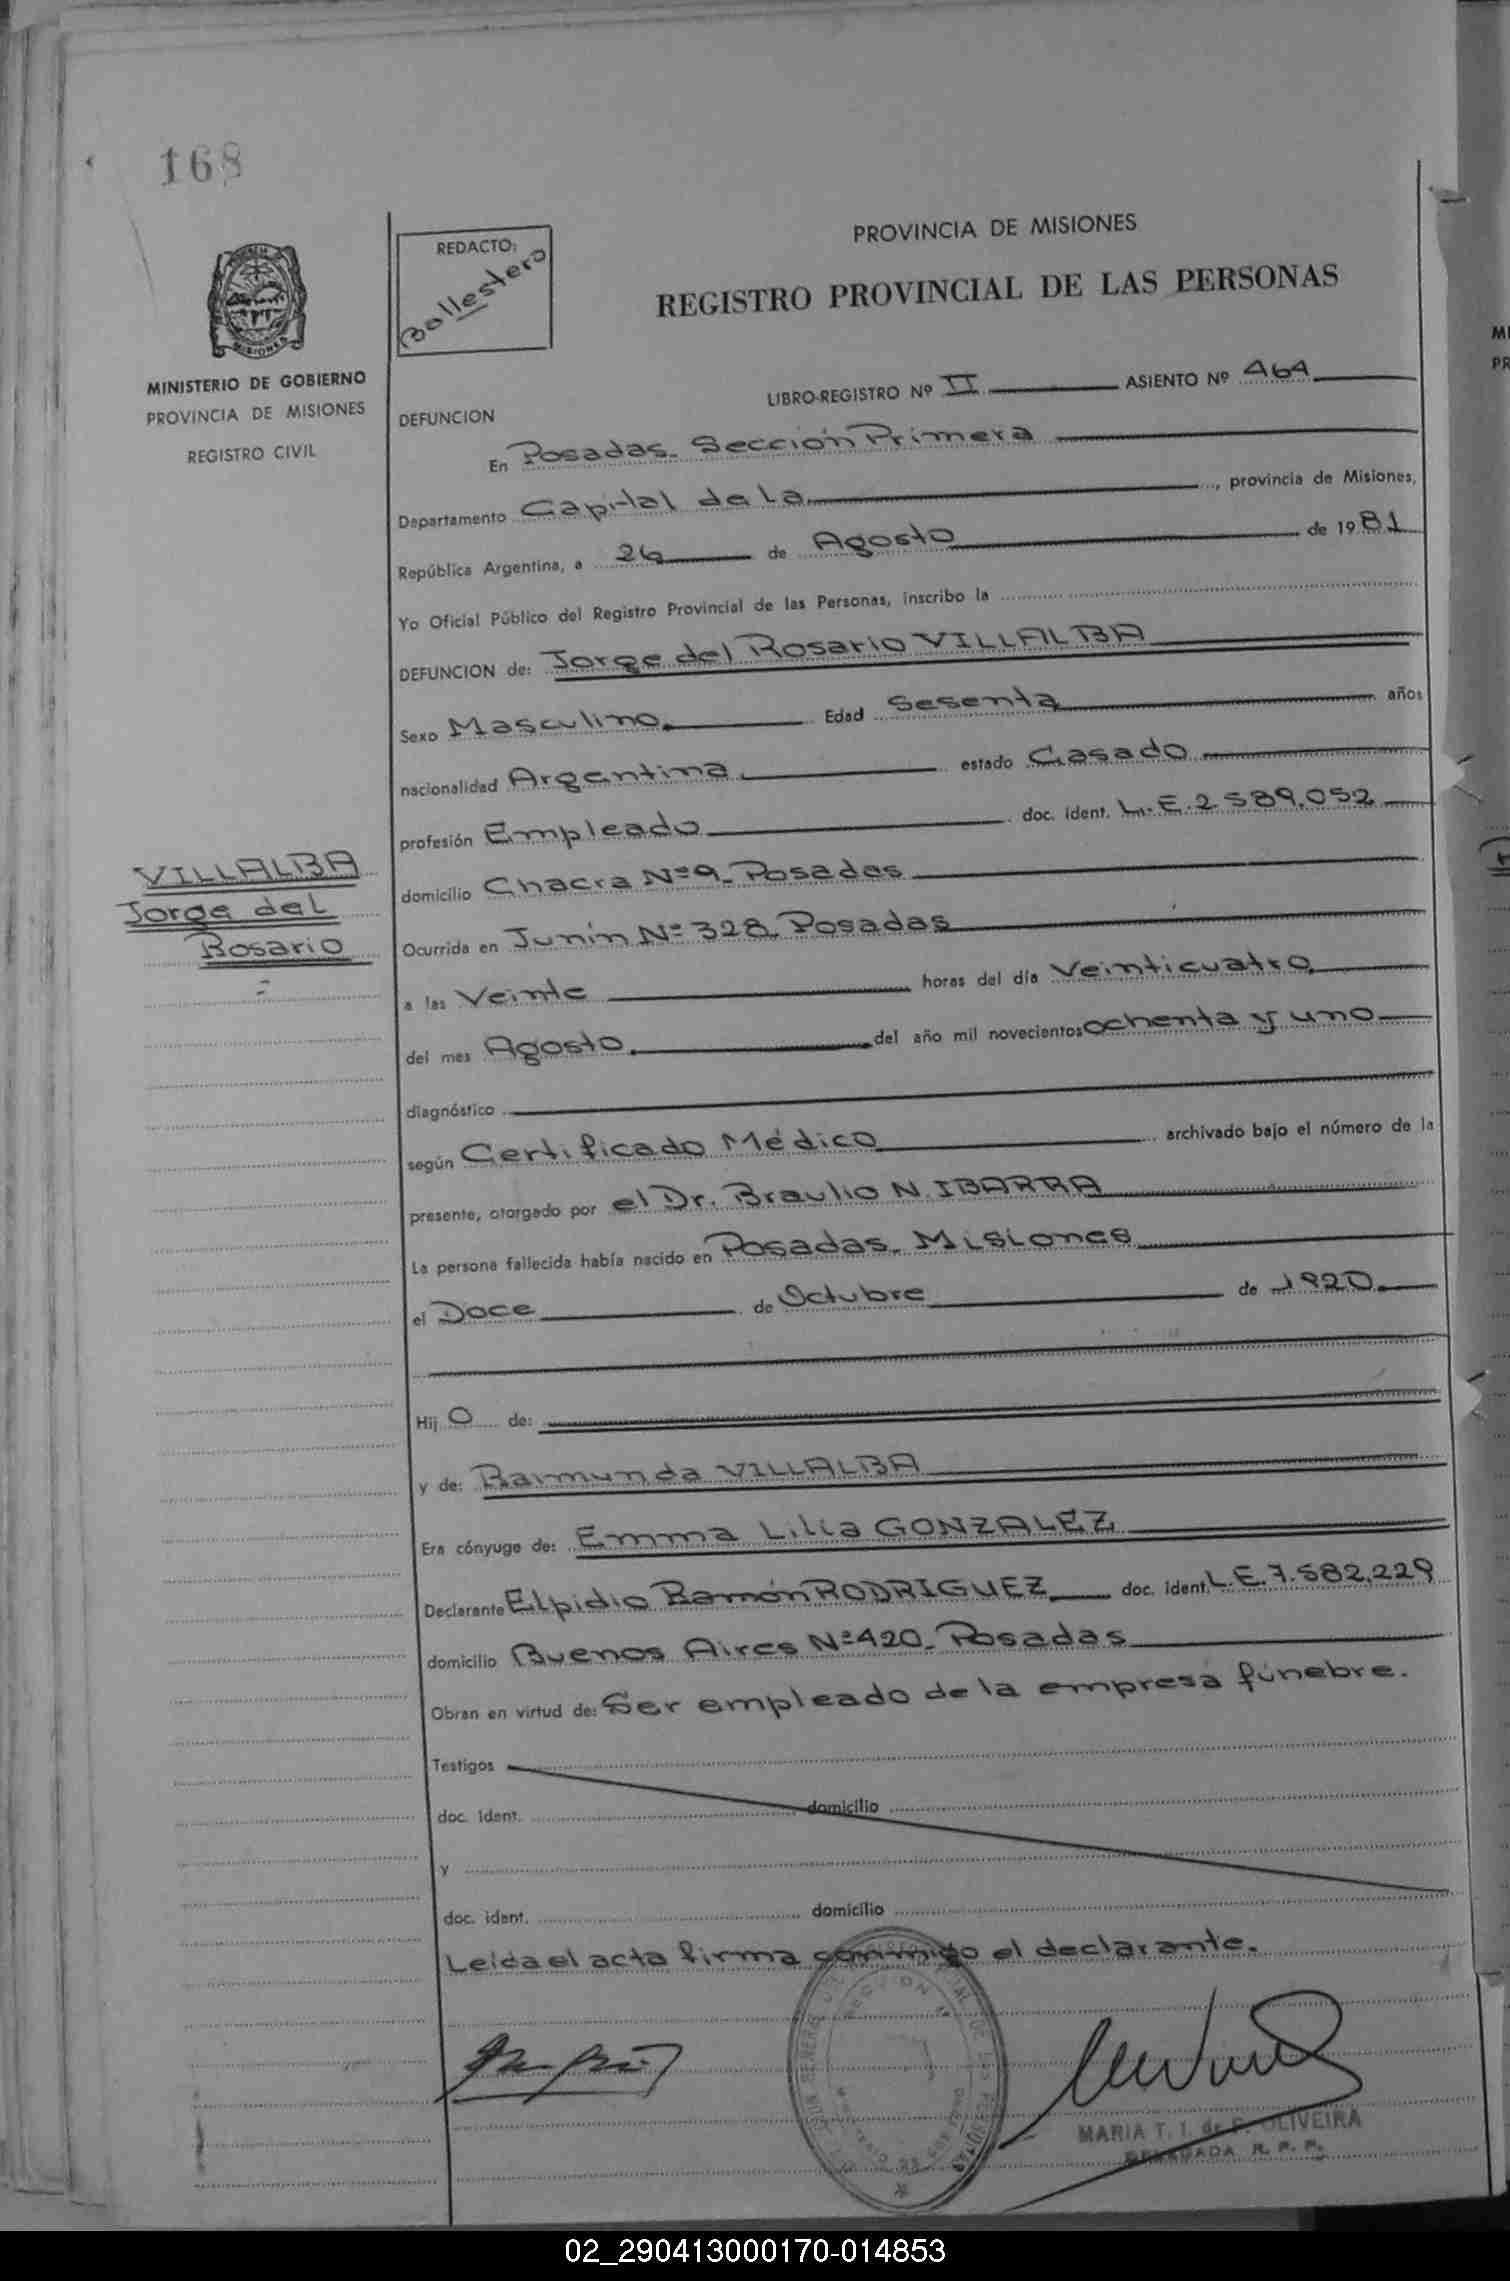 168
REDACTO:
Ballestero
PROVINCIA DE MISIONES
REGISTRO PROVINCIAL DE LAS PERSONAS
MISIONES
MINISTERIO DE GOBIERNO
PROVINCIA DE MISIONES
REGISTRO CIVIL
LIBRO-REGISTRO Nº II ASIENTO Nº 464
DEFUNCION
En Posadas. Sección Primera
Departamento Capital de la, provincia de Misiones,
República Argentina, a 26 de Agosto de 1981
Yo Oficial Público del Registro Provincial de las Personas, inscribo la
DEFUNCION de: Jorge del Rosario VILLALBA
Sexo Masculino. Edad Sesenta años
nacionalidad Argentina estado Casado
profesión Empleado doc. ident. L.E.2.589.052
VILLALBA
Jorge del
Rosario
domicilio Chacra Nº9. Posadas
Ocurrida en Junín Nº 328. Posadas
a las Veinte horas del día Veinticuatro
del mes Agosto. del año mil novecientos ochenta y uno
diagnóstico
según Certificado Médico archivado bajo el número de la
presente, otorgado por el Dr. Braulio N. IBARRA
La persona fallecida había nacido en Posadas. Misiones
el Doce de Octubre de 1920
Hijo de:
y de: Raimunda VILLALBA
Era cónyuge de: Emma Lilia GONZALEZ
Declarante Elpidio Ramón RODRIGUEZ doc. ident. L.E.7.582.229
domicilio Buenos Aires Nº420. Posadas
Obran en virtud de: Ser empleado de la empresa fúnebre.
Testigos
doc. ident. domicilio
y
doc. ident. domicilio
Leída el acta firma conmigo el declarante.
MARIA T. I. de OLIVEIRA
DELEGADA R. P. P.
02_290413000170-014853